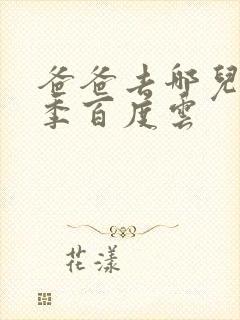 爸爸去哪兒
季百度雲
花漾